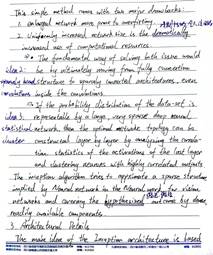 This simple method come with two major drawbacks:
1. Enlarged network more prone to overfitting.
2. Uniformly increased network size is the dramatically
increased use of computational resources.
The fundamental way of solving both issue would
idea 2: be by ultimately moving from fully connection
to sparsely connected architectures, even
inside the convolutions.
If the probability distribution of the data-set is
idea 3: representable by a large, very sparse deep neural
statistical network, then the optimal network topology can be
cluster constructed layer by layer by analyzing the
statistics of the activations of the last layer
and clustering neurons with highly correlated outputs.
The inception algorithm tries to approximate a sparse structure
implied by for vision
networks and covering the hypothesized outcome by dense,
readily available components.
3. Architectural Details
The main idea of the Inception architecture is based